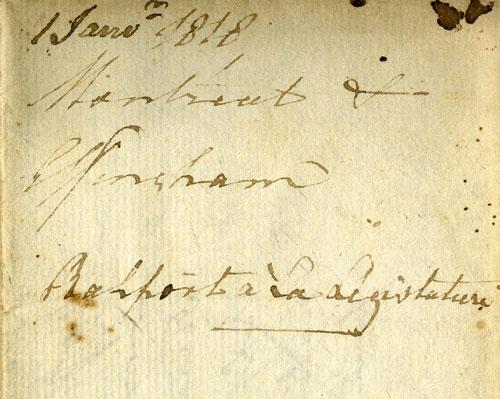 1 Janvr 1818
Montréal &
Effingham
Rapport à La Législature